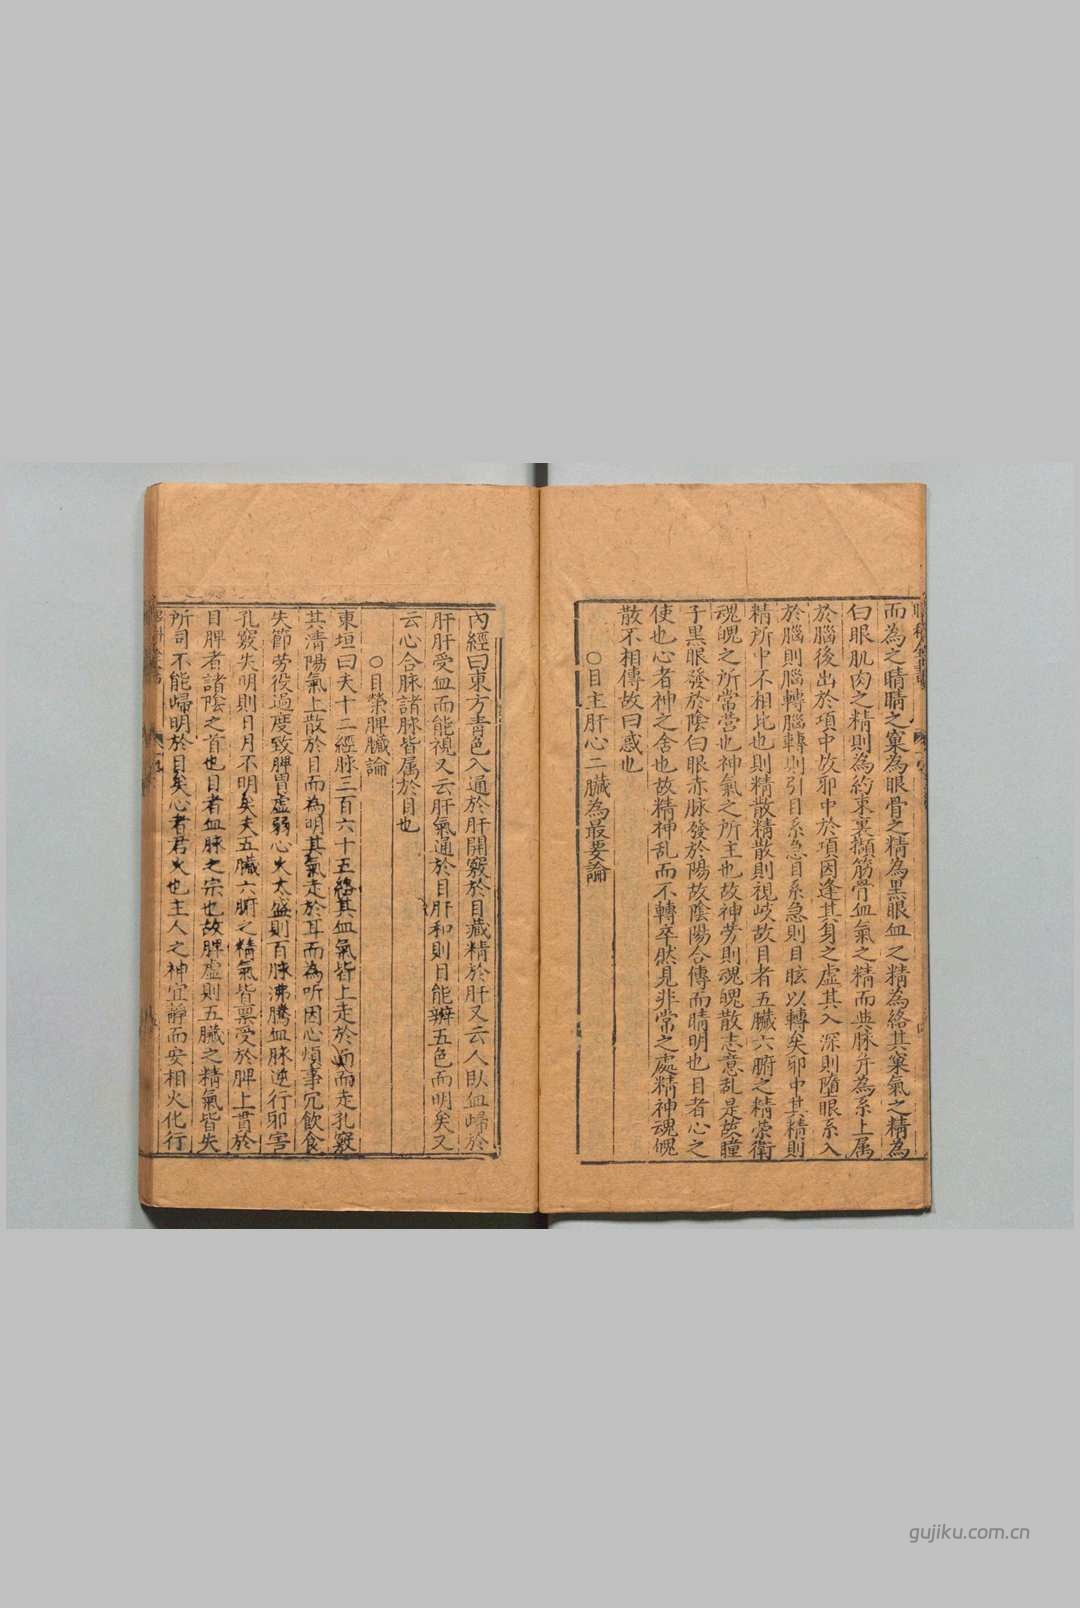 而為之睛睛之窠為眼骨之精為黑眼血之精為絡其窠氣之精為
白眼肌肉之精則為約束裏擷筋骨血氣之精而與脉并為系上属
於腦後出於項中故邪中於項因逢其身之虛其入深則隨眼系入
於腦則腦轉腦轉則引目系急目系急則目眩以轉矣邪中其精則
精所中不相比也則精散精散則視岐故目者五臟六腑之精榮衛
魂魄之所常营也神氣之所主也故神劳則魂魄散志意乱是故瞳
子黑眼發於陰白眼赤脉發於陽故陰陽合傳而睛明也目者心之
使也心者神之舍也故精神乱而不轉卒然見非常之處精神魂魄
散不相傳故曰惑也
○目主肝心二臟為最要論
內經曰東方青色入通於肝開竅於目藏精於肝又云人臥血歸於
肝肝受血而能視又云肝氣通於目肝和則目能辨五色而明矣又
云心合脉諸脉皆属於目也
○目榮脾臟論
東垣曰夫十二經脉三百六十五絡其血氣皆上走於面而走孔竅
其清陽氣上散於目而為明其氣走於耳而為听因心煩事冗飲食
失節劳役過度致脾胃虛弱心火太盛則百脉沸騰血脉逆行邪害
孔竅失明則日月不明矣夫五臟六腑之精氣皆禀受於脾上貫於
目脾者諸陰之首也目者血脉之宗也故脾虛則五臟之精氣皆失
所司不能歸明於目矣心者君火也主人之神宜靜而安相火化行
gujiku.com.cn